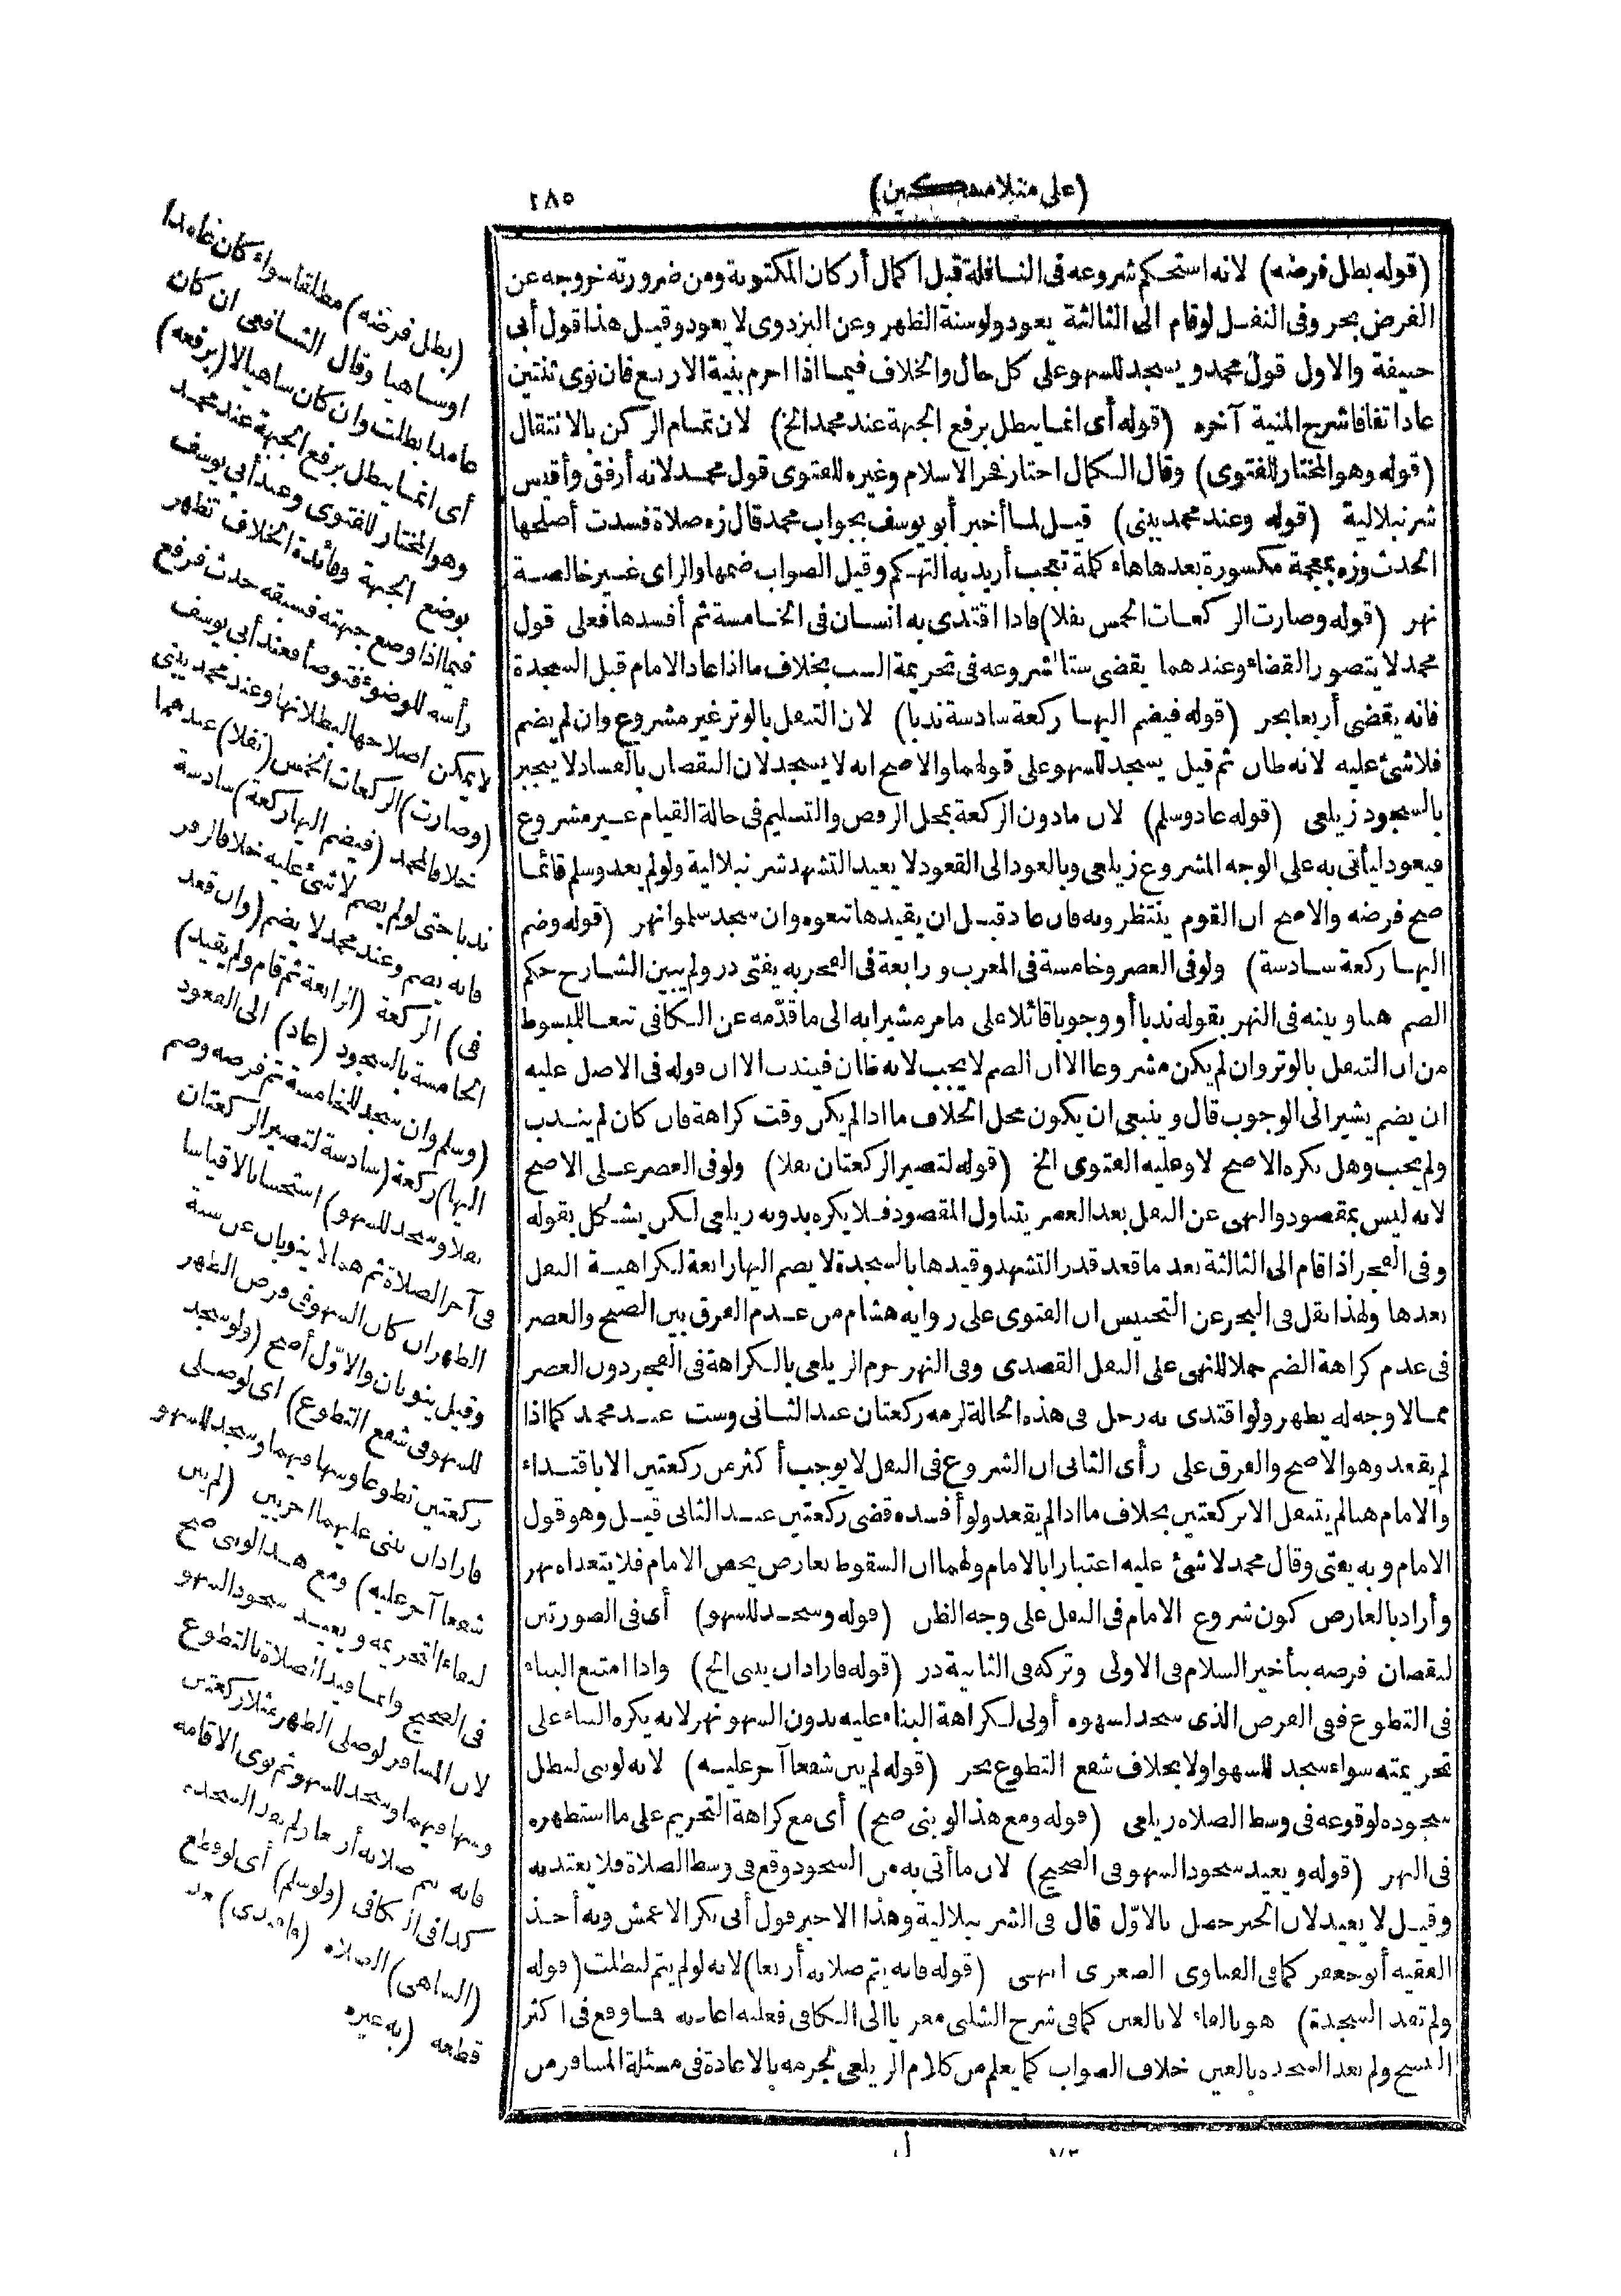 (على منلا مسكين)
٢٨٥
(قوله بطل فرضه) لانه استحكم شروعه فى النافلة قبل اكمال أركان المكتوبة ومن ضرورته خروجه عن
الفرض بحر وفى النفل لو قام الى الثالثة يعود ولو سنة الظهر وعن البزدوى لا يعود وقيل هذا قول أبى
حنيفة والاول قول محمد ويسجد للسهو على كل حال والخلاف فيما اذا احرم بنية الاربع فان نوى ثنتين
عاد اتفاقا شرح المنية آخره (قوله أى انما يبطل برفع الجبهة عند محمد الخ) لان تمام الركن بالانتقال
(قوله وهو المختار للفتوى) وقال الكمال اختار فخر الاسلام وغيره للفتوى قول محمد لانه أرفق وأقيس
شرنبلالية (قوله وعند محمد يبنى) قيل لما أخبر أبو يوسف بجواب محمد قال زه صلاة فسدت أصلحها
الحدث وزه بمعجمة مكسورة بعدها هاء كلمة تعجب أريد به التهكم وقيل الصواب ضمها والزاى غير خالصة
نهر (قوله وصارت الركعات الخمس نفلا) فاذا اقتدى به انسان فى الخامسة ثم أفسدها فعلى قول
محمد لا يتصور القضاء وعندهما يقضى ستا لشروعه فى تحريمة الست بخلاف ما اذا عاد الامام قبل السجدة
فانه يقضى أربعا بحر (قوله فيضم اليها ركعة سادسة ندبا) لان التنفل بالوتر غير مشروع وان لم يضم
فلا شئ عليه لانه ظان ثم قيل يسجد للسهو على قولهما والاصح انه لا يسجد لان النقصان بالفساد لا ينجبر
بالسجود زيلعى (قوله عاد وسلم) لان مادون الركعة بمحل الرفض والتسليم فى حالة القيام غير مشروع
فيعود ليأتى به على الوجه المشروع زيلعى وبالعود الى القعود لا يعيد التشهد شرنبلالية ولو لم يعد وسلم قائما
صح فرضه والاصح ان القوم ينتظرونه فان عاد قبل ان يقيدها تبعوه وان سجد سلموا نهر (قوله وضم
اليها ركعة سادسة) ولو فى العصر وخامسة فى المغرب ورابعة فى الفجر به يفتى در ولم يبين الشارح حكم
الضم هنا وبينه فى النهر بقوله ندبا أو وجوبا قائلا على ما مر مشيرا به الى ما قدّمه عن الكافى تبعا للمبسوط
من ان التنفل بالوتر وان لم يكن مشروعا الا ان الضم لا يجب لانه ظان فيندب الا ان قوله فى الاصل عليه
ان يضم يشير الى الوجوب قال وينبغى ان يكون محل الخلاف ما اذا لم يكن وقت كراهة فان كان لم يندب
ولم يجب وهل يكره الاصح لا وعليه الفتوى الخ (قوله لتصير الركعتان نفلا) ولو فى العصر على الاصح
لانه ليس بمقصود والنهى عن النفل بعد العصر يتناول المقصود فلا يكره بدونه زيلعى لكن يشكل بقوله
وفى الفجر اذا قام الى الثالثة بعد ما قعد قدر التشهد وقيدها بالسجدة لا يضم اليها رابعة لكراهية النفل
بعدها ولهذا نقل فى البحر عن التجنيس ان الفتوى على رواية هشام من عدم الفرق بين الصبح والعصر
فى عدم كراهة الضم حملا للنهى على النفل القصدى وفى النهر جزم الزيلعى بالكراهة فى الفجر دون العصر
مما لا وجه له يظهر ولو اقتدى به رجل فى هذه الحالة لزمه ركعتان عند الثانى وست عند محمد كما اذا
لم يقعد وهو الاصح والفرق على رأى الثانى ان الشروع فى النفل لا يوجب أكثر من ركعتين الا باقتداء
والامام هنا لم يتنفل الا بركعتين بخلاف ما اذا لم يقعد ولو أفسده قضى ركعتين عند الثانى قيل وهو قول
الامام وبه يفتى وقال محمد لا شئ عليه اعتبارا بالامام ولهما ان السقوط بعارض يخص الامام فلا يتعداه نهر
وأراد بالعارض كون شروع الامام فى النفل على وجه الظن (قوله وسجد للسهو) أى فى الصورتين
لنقصان فرضه بتأخير السلام فى الاولى وتركه فى الثانية در (قوله فاراد ان يبنى الخ) واذا امتنع البناء
فى التطوع ففى الفرض الذى سجد لسهوه أولى لكراهة البناء عليه بدون السهو نهر لانه يكره البناء على
تحريمته سواء سجد للسهو اولا بخلاف شفع التطوع بحر (قوله لم يبن شفعا آخر عليه) لانه لو بنى لبطل
سجوده لوقوعه فى وسط الصلاة زيلعى (قوله ومع هذا لو بنى صح) أى مع كراهة التحريم على ما استظهره
فى النهر (قوله ويعيد سجود السهو فى الصحيح) لان ما أتى به من السجود وقع فى وسط الصلاة فلا يعتد به
وقيل لا يعيد لان الجبر حصل بالاوّل قال فى الشرنبلالية وهذا الاخير قول أبى بكر الاعمش وبه أخذ
الفقيه أبو جعفر كما فى الفتاوى الصغرى انتهى (قوله فانه يتم صلاته أربعا) لانه لو لم يتم لبطلت (قوله
ولم تعد السجدة) هو بالفاء لا بالعين كما فى شرح الشلبى معزيا الى الكافى فعليه اعادته فما وقع فى اكثر
النسخ ولم يعد السجدة بالعين خلاف الصواب كما يعلم من كلام الزيلعى لجزمه بالاعادة فى مسئلة المسافر من
(بطل فرضه) مطلقا سواء كان عامدا
اوساهيا وقال الشافعى ان كان
عامدا بطلت وان كان ساهيا لا (برفعه)
أى انما يبطل برفع الجبهة عند محمد
وهو المختار للفتوى وعند أبى يوسف
بوضع الجبهة وفائدة الخلاف تظهر
فيما اذا وضع جبهته فسبقه حدث فرفع
رأسه للوضوء فتوضأ فعند أبى يوسف
لا يمكن اصلاحها لبطلانها وعند محمد يبنى
(وصارت) الركعات الخمس (نفلا) عندهما
خلافا لمحمد (فيضم اليها ركعة) سادسة
ندبا حتى لو لم يضم لا شئ عليه خلافا لزفر
فانه يضم وعند محمد لا يضم (وان قعد
فى) الركعة (الرابعة ثم قام ولم يقيد)
الخامسة بالسجود (عاد) الى القعود
(وسلم وان سجد للخامسة تم فرضه وضم
اليها) ركعة (سادسة لتصير الركعتان
نفلا وسجد للسهو) استحسانا لا قياسا
فى آخر الصلاة ثم هما لا ينوبان عن سنة
الظهر ان كان السهو فى فرض الظهر
وقيل ينوبان والاوّل أصح (ولو سجد
للسهو فى شفع التطوع) اى لو صلى
ركعتين تطوعا وسها فيهما وسجد للسهو
فاراد ان يبنى عليهما اخريين (لم يبن
شفعا آخر عليه) ومع هذا لو بنى صح
لبقاء التحريمة ويعيد سجود السهو
فى الصحيح وانما قيد الصلاة بالتطوع
لان المسافر لو صلى الظهر مثلا ركعتين
وسها فيهما وسجد للسهو ثم نوى الاقامة
فانه يتم صلاته أربعا ولم يعد السجدة
كذا فى الكافى (ولو سلم) أى لو قطع
(الساهى) الصلاة (واقتدى)
قطعه (به غيره
٧٣
ل